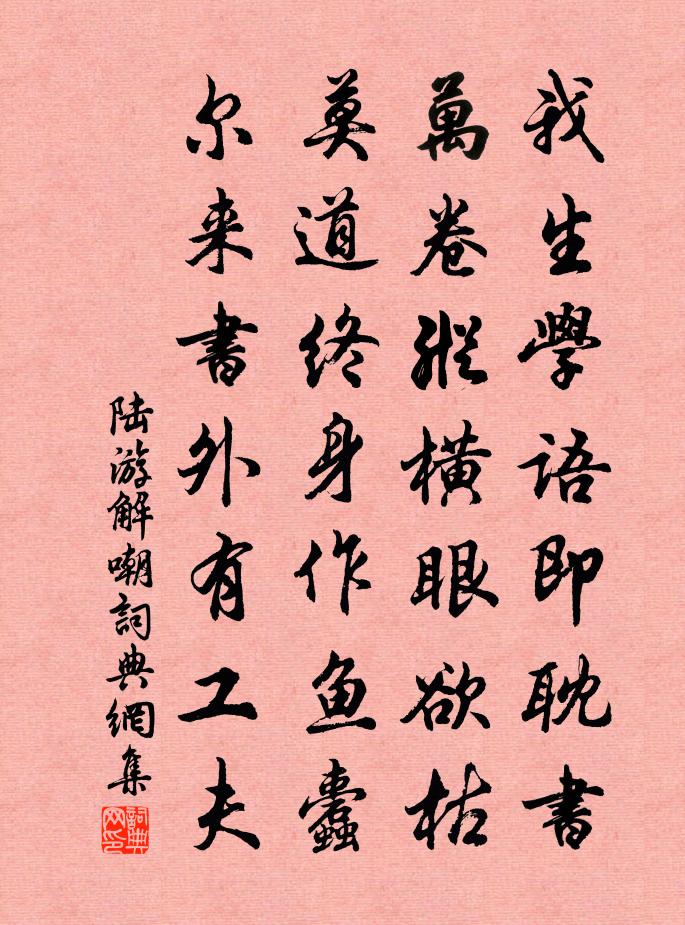 我生學語即耽書
萬卷縱橫眼欲枯
莫道終身作鱼蠹
尔来書外有工夫
陆游解嘲詞典網集
詞典网印